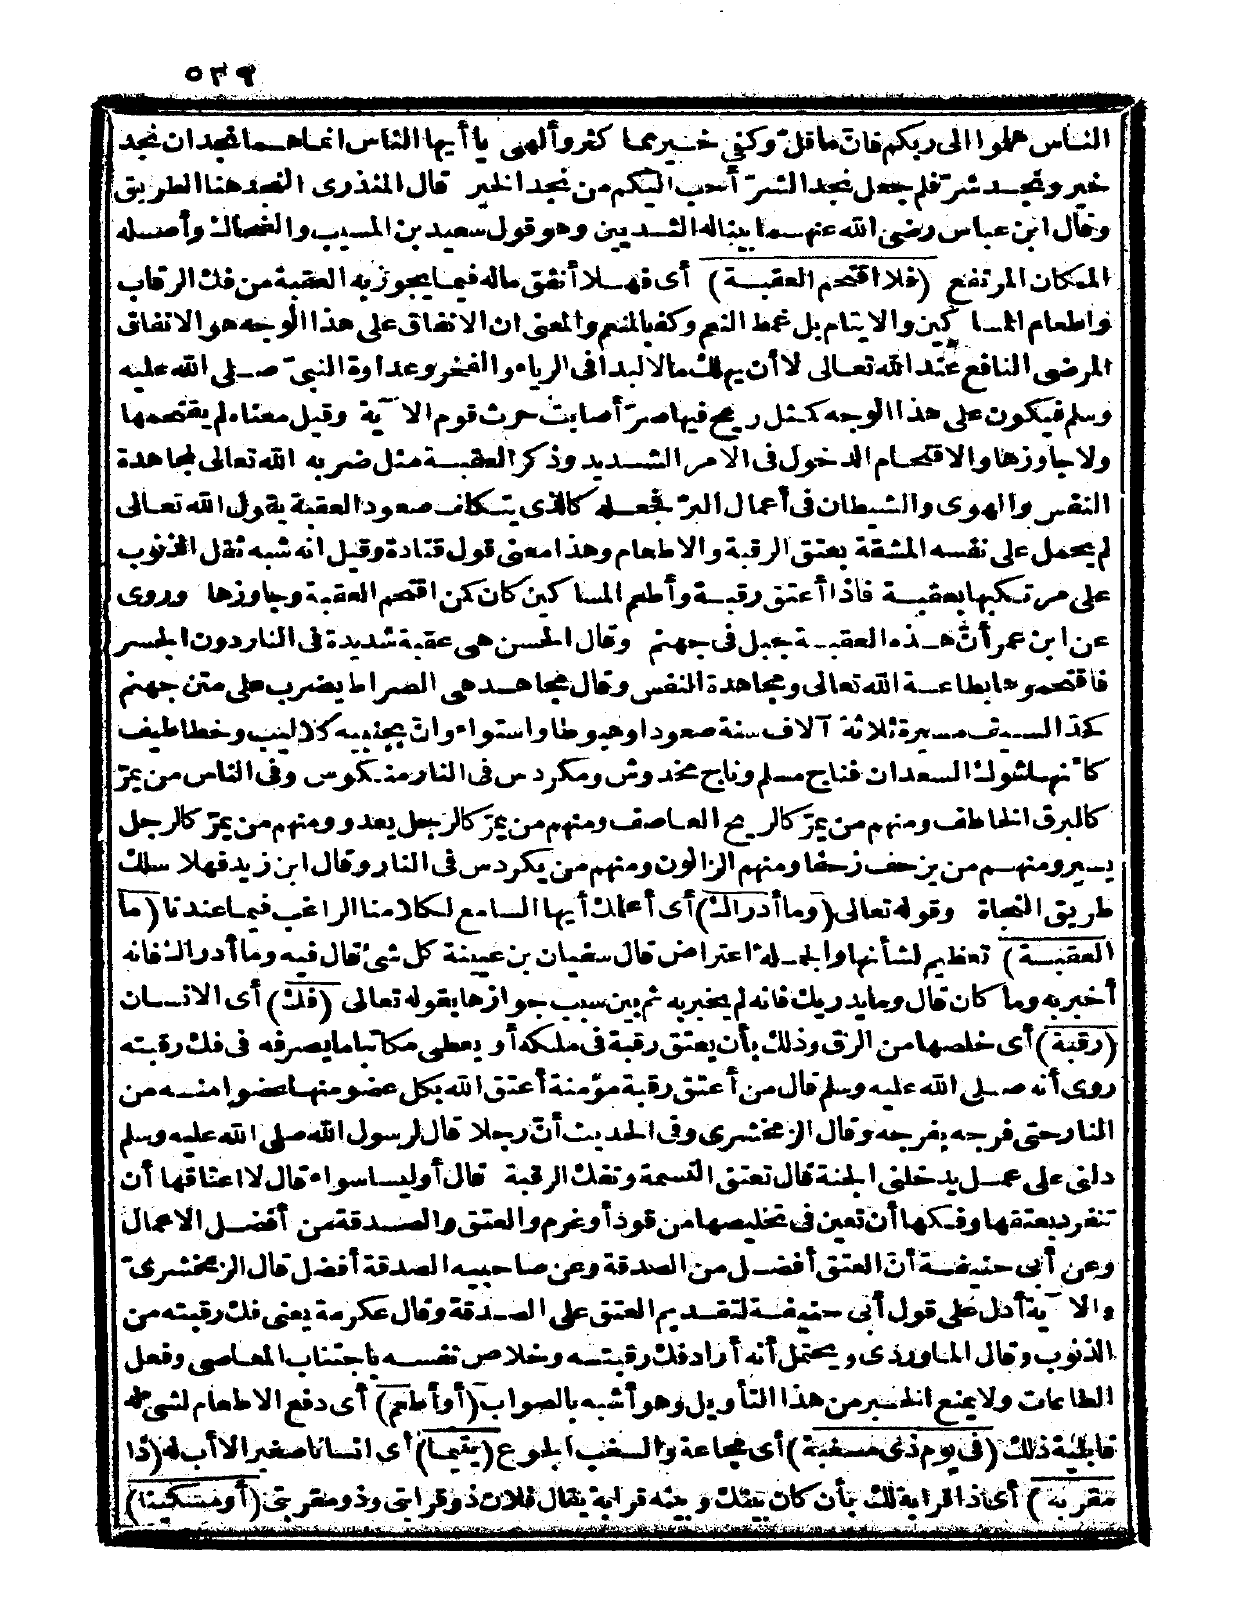 ٥٣٩
الناس هلموا الى ربكم فان ما قل وكفى خير مما كثر وألهى يا أيها الناس انما هما نجدان نجد
خير ونجد شر فلم جعل نجد الشر أحب اليكم من نجد الخير قال المنذرى النجد هنا الطريق
وقال ابن عباس رضى الله عنهما بيناله الثديين وهو قول سعيد بن المسيب والضحاك وأصله
المكان المرتفع (فلا اقتحم العقبة) أى فهلا أنفق ماله فيما يجوز به العقبة من فك الرقاب
واطعام المساكين والايتام بل غمط النعم وكفر بالمنعم والمعنى ان الانفاق على هذا الوجه هو الانفاق
المرضى النافع عند الله تعالى لا أن يهلك مالا لبدا فى الرياء والفخر وعداوة النبىّ صلى الله عليه
وسلم فيكون على هذا الوجه كمثل ريح فيها صرّ أصابت حرث قوم الآية وقيل معناه لم يقتحمها
ولا جاوزها والاقتحام الدخول فى الامر الشديد وذكر العقبة مثل ضربه الله تعالى لمجاهدة
النفس والهوى والشيطان فى أعمال البرّ فجعله كالذى يتكلف صعود العقبة يقول الله تعالى
لم يحمل على نفسه المشقة بعتق الرقبة والاطعام وهذا معنى قول قتادة وقيل انه شبه ثقل الذنوب
على مرتكبها بعقبة فاذا أعتق رقبة وأطعم المساكين كان كمن اقتحم العقبة وجاوزها وروى
عن ابن عمر أنّ هذه العقبة جبل فى جهنم وقال الحسن هى عقبة شديدة فى النار دون الجسر
فاقتحموها بطاعة الله تعالى ومجاهدة النفس وقال مجاهد هى الصراط يضرب على متن جهنم
كحدّ السيف مسيرة ثلاثة آلاف سنة صعودا وهبوطا واستواء وانّ بجنبيه كلاليب وخطاطيف
كأنها شوك السعدان فناج مسلم وناج مخدوش ومكردس فى النار منكوس وفى الناس من يمرّ
كالبرق الخاطف ومنهم من يمرّ كالريح العاصف ومنهم من يمرّ كالرجل يعدو ومنهم من يمرّ كالرجل
يسير ومنهم من يزحف زحفا ومنهم الزالون ومنهم من يكردس فى النار وقال ابن زيد فهلا سلك
طريق النجاة وقوله تعالى (وما أدراك) أى أعلمك أيها السامع لكلامنا الراغب فيما عندنا (ما
العقبة) تعظيم لشأنها والجملة اعتراض قال سفيان بن عيينة كل شئ قال فيه وما أدراك فانه
أخبر به وما كان قال وما يدريك فانه لم يخبر به ثم بين سبب جوازها بقوله تعالى (فك) أى الانسان
(رقبة) أى خلصها من الرق وذلك بأن يعتق رقبة فى ملكه أو يعطى مكاتبا ما يصرفه فى فك رقبته
روى أنه صلى الله عليه وسلم قال من أعتق رقبة مؤمنة أعتق الله بكل عضو منها عضوا منه من
النار حتى فرجه بفرجه وقال الزمخشرى وفى الحديث أنّ رجلا قال لرسول الله صلى الله عليه وسلم
دلنى على عمل يدخلنى الجنة قال تعتق النسمة وتفك الرقبة قال أوليسا سواء قال لا اعتاقها أن
تنفرد بعتقها وفكها أن تعين فى تخليصها من قود أو غرم والعتق والصدقة من أفضل الاعمال
وعن أبى حنيفة أنّ العتق أفضل من الصدقة وعن صاحبيه الصدقة أفضل قال الزمخشرىّ
والآية أدل على قول أبى حنيفة لتقديم العتق على الصدقة وقال عكرمة يعنى فك رقبته من
الذنوب وقال الماوردى ويحتمل أنه أراد فك رقبته وخلاص نفسه باجتناب المعاصى وفعل
الطاعات ولا يمنع الخبر من هذا التأويل وهو أشبه بالصواب (أو أطعم) أى دفع الاطعام لشئ له
قابلية ذلك (فى يوم ذى مسغبة) أى مجاعة والسغب الجوع (يتيما) أى انسانا صغيرا لا أب له (ذا
مقربة) أى ذا قرابة لك بأن كان بينك وبينه قرابة يقال فلان ذو قرابتى وذو مقربتى (أو مسكينا)